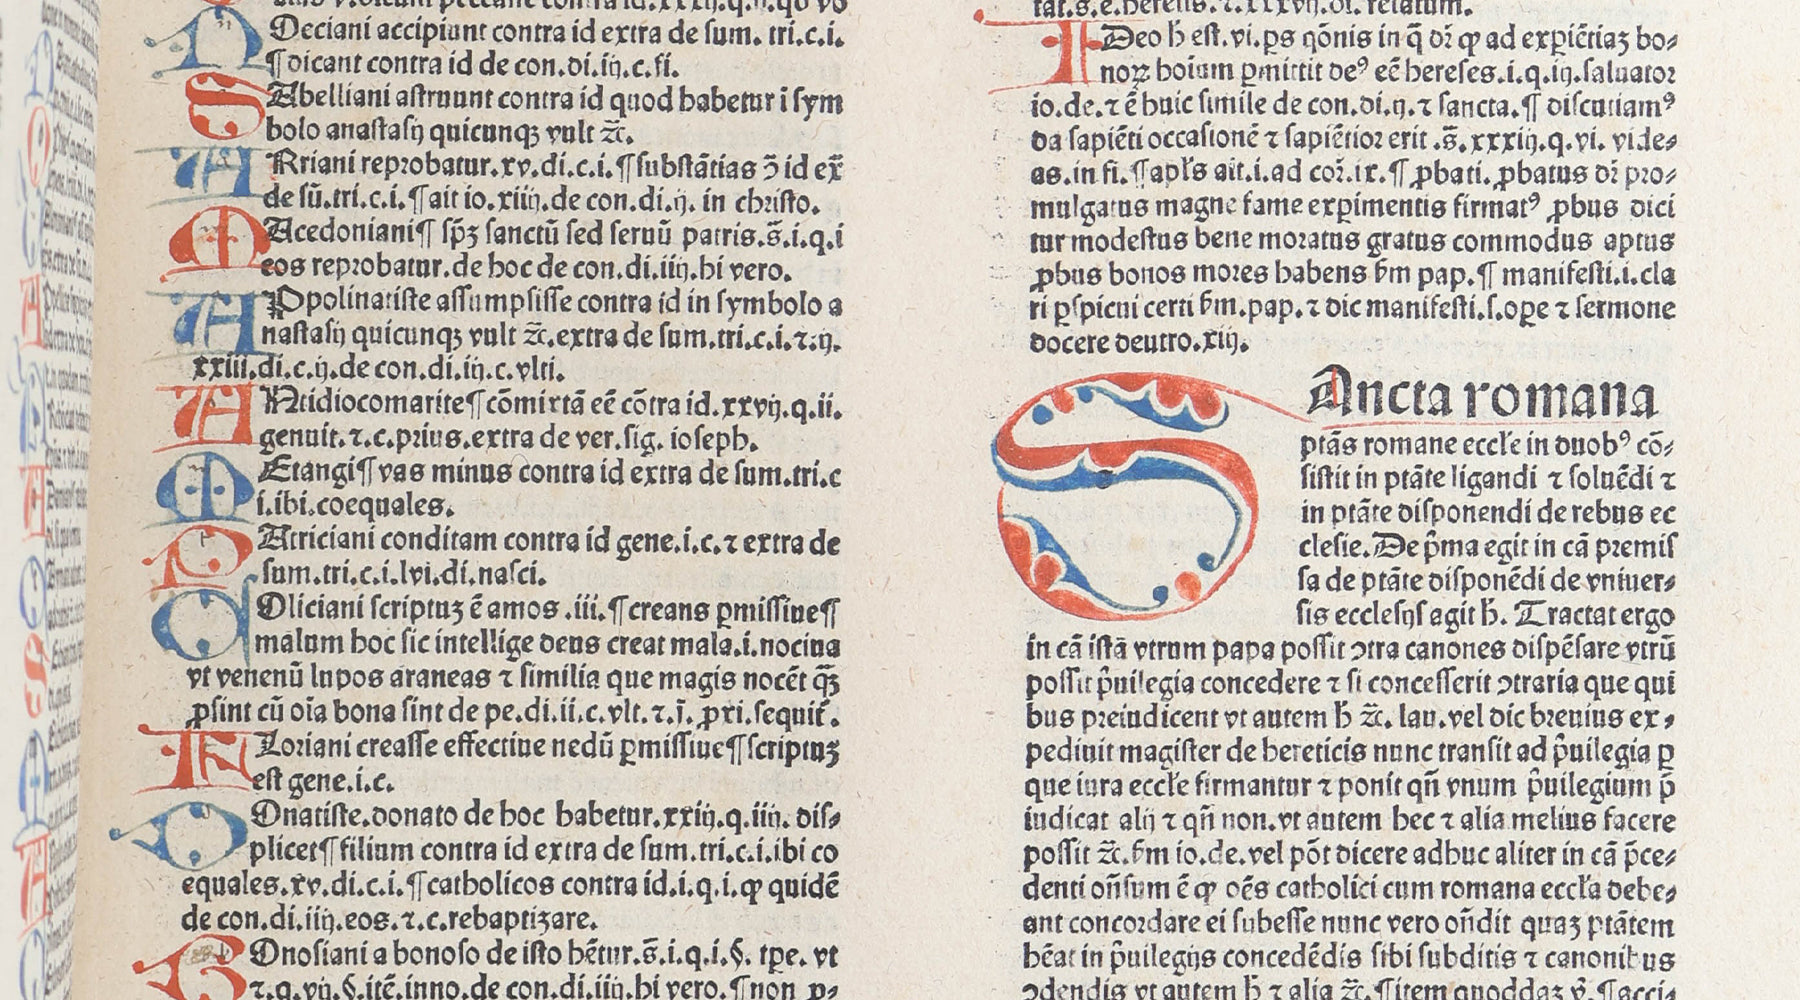 Deciani accipiunt contra id extra de sum. tri.c.i.
¶dicant contra id de con.di.iii.c.fi.
SAbelliani astruunt contra id quod habetur i sym
bolo anastasij quicunqꝫ vult ⁊c̄.
ARriani reprobatur.xv.di.c.i.¶substātias ↄ̄ id ex̄
de sū.tri.c.i.¶ait io.xiiij.de con.di.ij. in christo.
MAcedoniani¶ sp̄ꝫ sanctū sed seruū patris.s̄.i.q.i
eos reprobatur.de hoc de con.di.iiij.hi vero.
APpolinatiste assumpsisse contra id in symbolo a
nastasij quicunqꝫ vult ⁊c̄.extra de sum.tri.c.i.⁊.ij.
xxiii.di.c.ij.de con.di.iij.c.vlti.
ANtidiocomarite¶cōmixtā eē cōtra id.xxvij.q.ii.
genuit.⁊.c.prius.extra de ver.sig. ioseph.
METangi¶vas minus contra id extra de sum.tri.c
i.ibi.coequales.
PAtriciani conditam contra id gene.i.c.⁊ extra de
sum.tri.c.i.lvi.di.nasci.
COliciani scriptuꝫ ē amos .iii.¶creans ꝑmissiue¶
malum hoc sic intellige deus creat mala.i.nociua
vt venenū lupos araneas ⁊ similia que magis nocēt qꝫ̄
ꝓsint cū oīa bona sint de pe.di.ii.c.vlt.⁊.j̄. ꝓxi.sequit᷑.
FLoriani creasse effectiue nedū ꝑmissiue¶scriptuꝫ
est gene.i.c.
DOnatiste.donato de hoc habetur.xxiij.q.iiij. dis⸗
plicet¶filium contra id extra de sum.tri.c.i.ibi co
equales.xv.di.c.i.¶catholicos contra id.i.q.i.ꝙ quidē
de con.di.iiij.eos.⁊.c.rebaptiꝫare.
BOnosiani a bonoso de isto hētur.s̄.i.q.i.§. tꝑe. vt
⁊.q.vij.§.itē.inno.de con.di.iiij.hi vero.¶non p⸗
tat.s.e.hereus.⁊.xxxvij.di. relatum.
IDeo ħ est.vi.ꝑs qōnis in q̄ dr̄ ꝙ ad exꝑiētiaꝫ bo⸗
noꝝ hoīum ꝑmittit deꝰ eē hereses.i.q.iij.saluator
io.de.⁊ ē huic simile de con.di.ij.⁊ sancta.¶ discutiamꝰ
da sapiēti occasionē ⁊ sapiētior erit .s̄.xxxiij.q.vi. vide⸗
as.in fi.¶apl̄s ait.i.ad cor̄.ix.¶ ꝓbati. ꝓbatus dr̄ pro⸗
mulgatus magne fame exꝑimentis firmatꝰ ꝓbus dici
tur modestus bene moratus gratus commodus aptus
ꝓbus bonos mores habens ẜm pap.¶ manifesti.i.cla
ri ꝑspicui certi ẜm.pap.⁊ dic manifesti.s.oꝑe ⁊ sermone
docere deutro.xiij.
SAncta romana
ptās romane eccl̄e in duobꝰ cō⸗
sistit in ptāte ligandi ⁊ soluēdi ⁊
in ptāte disponendi de rebus ec
clesie.De p̄ma egit in cā premis
sa de ptāte disponēdi de vniuer⸗
sis ecclesijs agit ħ. Tractat ergo
in cā istā vtrum papa possit ↄtra canones dispēsare vtrū
possit p̄uilegia concedere ⁊ si concesserit ↄtraria que qui
bus preiudicent vt autem ħ ⁊c̄. lau.vel dic breuius ex⸗
pediuit magister de hereticis nunc transit ad p̄uilegia ꝑ
que iura eccl̄e firmantur ⁊ ponit qn̄ vnum p̄uilegium p̄
iudicat alij ⁊ qn̄ non.vt autem hec ⁊ alia melius facere
possit ⁊c̄.ẜm io.de.vel pōt dicere adhuc aliter in cā p̄ce⸗
denti on̄sum ē ꝙ oēs catholici cum romana eccl̄a debe⸗
ant concordare ei subesse nunc vero on̄dit quaꝫ ptātem
hēat in p̄uilegijs concedēdis sibi subditis ⁊ canonibus
ↄdendis vt autem ħ ⁊ alia ⁊c̄.¶item quoddaꝫ v̄.¶acci⸗